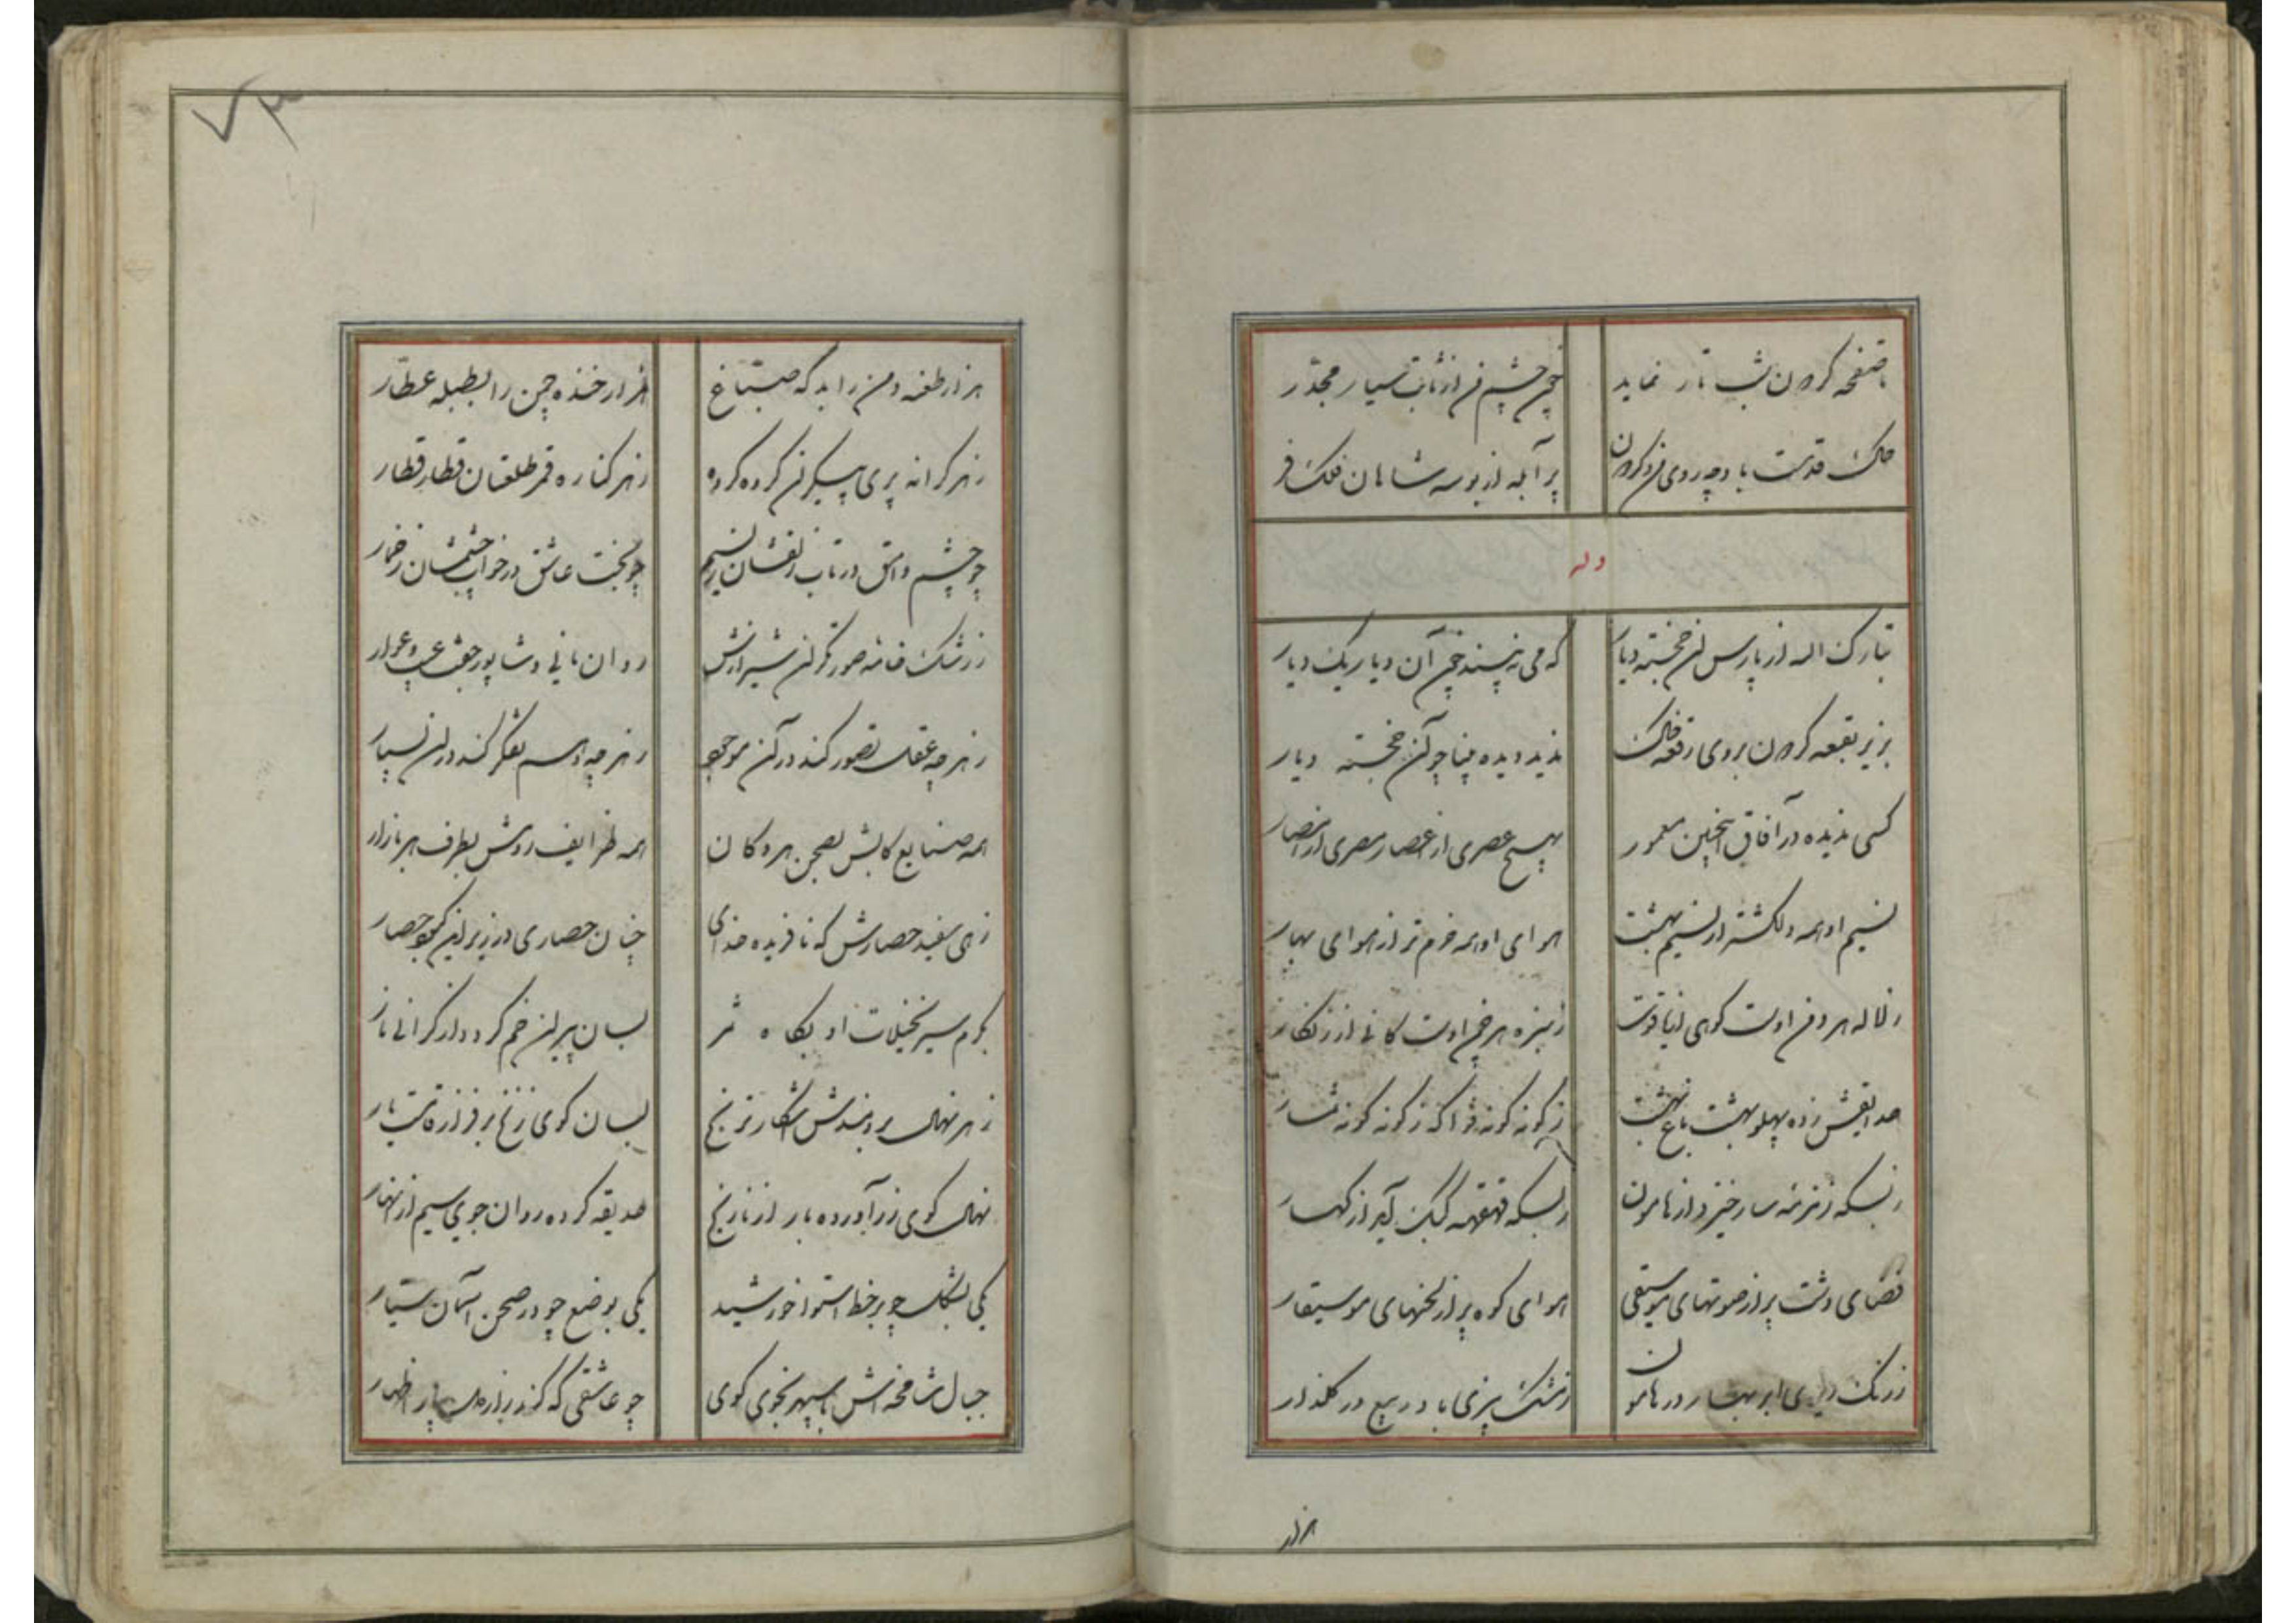 تا صفحه گردون شب تار نماید
چون چشم من از ثابت و سیار مجدّر
خاک قدمت باد چو روی من و گردون
پر آبله از بوسه شاهان فلک فر
وله
تبارک الله از پارس آن خجسته دیار
که می نه پسندد چون آن دیار یک دیار
بزیر بقعه گردون بروی رقعه خاک
ندیده دیده مینا چو آن خجسته دیار
کسی ندیده در آفاق اینچنین معمور
بهیچ عصری از اعصار مصری از امصار
نسیم او همه دلکشتر از نسیم بهشت
هوای او همه خرم تر از هوای بهار
ز لاله هر دمن اوست کوهی از یاقوت
ز سبزه هر چمن اوست کانی از زنگار
حدایقش زده پهلو بهشت باغ بهشت
ز گونه گونه فواکه ز گونه گونه ثمار
ز بسکه زمزمه سار خیزد از هامون
ز بسکه قهقهه کبک آید از کهسار
فضای دشت پر از صوتهای موسیقی
هوای کوه پر از لحنهای موسیقار
ز رنگ ریزی ابر بهار در هامون
ز مشک بیزی باد ربیع در گلزار
هزار
۷۳
هزار طعنه دمن را بدکه صبّاغ
هزار خنده چمن را بطبله عطّار
ز هر کرانه پری پیکران گروه گروه
ز هر کناره قمر طلعتان قطار قطار
چو چشم وامق در تاب زلفشان ز نسیم
چو بخت عاشق در خواب چشمشان ز خمار
ز رشک خامه صورتگران شیرازش
روان مانی و شاپور جفت عیب و عوار
ز هر چه عقل تصور کند در آن موجود
ز هر چه وهم تفکر کند در آن بسیار
همه صنایع کابش بصحن هر دکان
همه ظرایف روسش بطرف هر بازار
زهی سفید حصارش که نافریده خدای
چنان حصاری در زیر این کبود حصار
بجرم سیر نخیلات او بگاه ثمر
بسان پیران خم گردد از گرانی بار
ز هر نهال برومندش آشکار ترنج
بسان گوی زنخ بر فراز قامت یار
نهال گوی زر آورده بار از نارنج
حدیقه کرده روان جوی سیم از انهار
یکی بشکل چو بر خط استوا خورشید
یکی بوضع چو در صحن آسمان سیّار
جبال شامخه اش با سپهر نجوی گوی
چو عاشقی که کند راز دل بیار اظهار